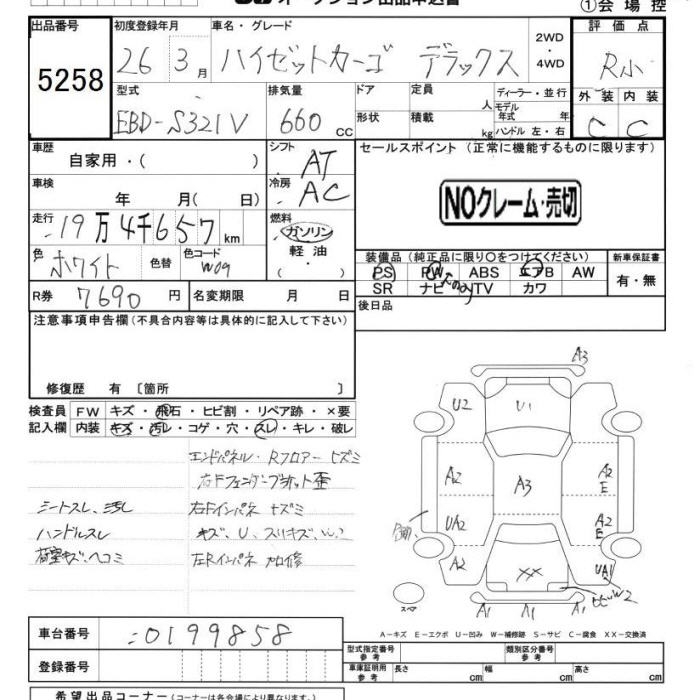 オークション出品申込書
①会場控
出品番号 初度登録年月 車名・グレード 評価点
5258 26年3月 ハイゼットカーゴ デラックス 2WD・4WD R小
型式 排気量 ドア 定員 ディーラー・並行 外装 内装
EBD-S321V 660 CC 形状 積載 人 kg モデル年式 年 ハンドル 左・右 C C
車歴 自家用・( ) シフト AT セールスポイント (正常に機能するものに限ります)
車検 年 月( 日) 冷房 AC
NOクレーム・売切
走行 19万4千657km 燃料 ガソリン 軽油
色 ホワイト 色替 色コード W09
装備品 (純正品に限り○をつけてください) 新車保証書
PS PW ABS エアB AW 有・無
SR ナビ TV カワ
R券 7690円 名変期限 月 日
後日品
注意事項申告欄 (不具合内容等は具体的に記入して下さい)
修復歴 有 〔箇所 〕
検査員 FW キズ・飛石・ヒビ割・リペア跡・×要
記入欄 内装 キズ・汚レ・コゲ・穴・スレ・キレ・破レ
エンドパネル・Rフロアーヒズミ
シートスレ、汚レ 右Fインパネ
ハンドルスレ キズ、U、スリキズ、W2
荷室キズ、ヘコミ 左Rインパネ
A3
U2 U1
A2 A3 A2 E
UA2 A2 E
A2 XX UA1
W2
スペア A1 A1 A1
A-キズ E-エクボ U-凹み W-補修跡 S-サビ C-腐食 XX-交換済
車台番号 -0199858
登録番号
型式指定番号 参考 類別区分番号 参考
車庫証明用 参考 長さ cm 幅 cm 高さ cm
希望出品コーナー (コーナーは各会場により異なります。)